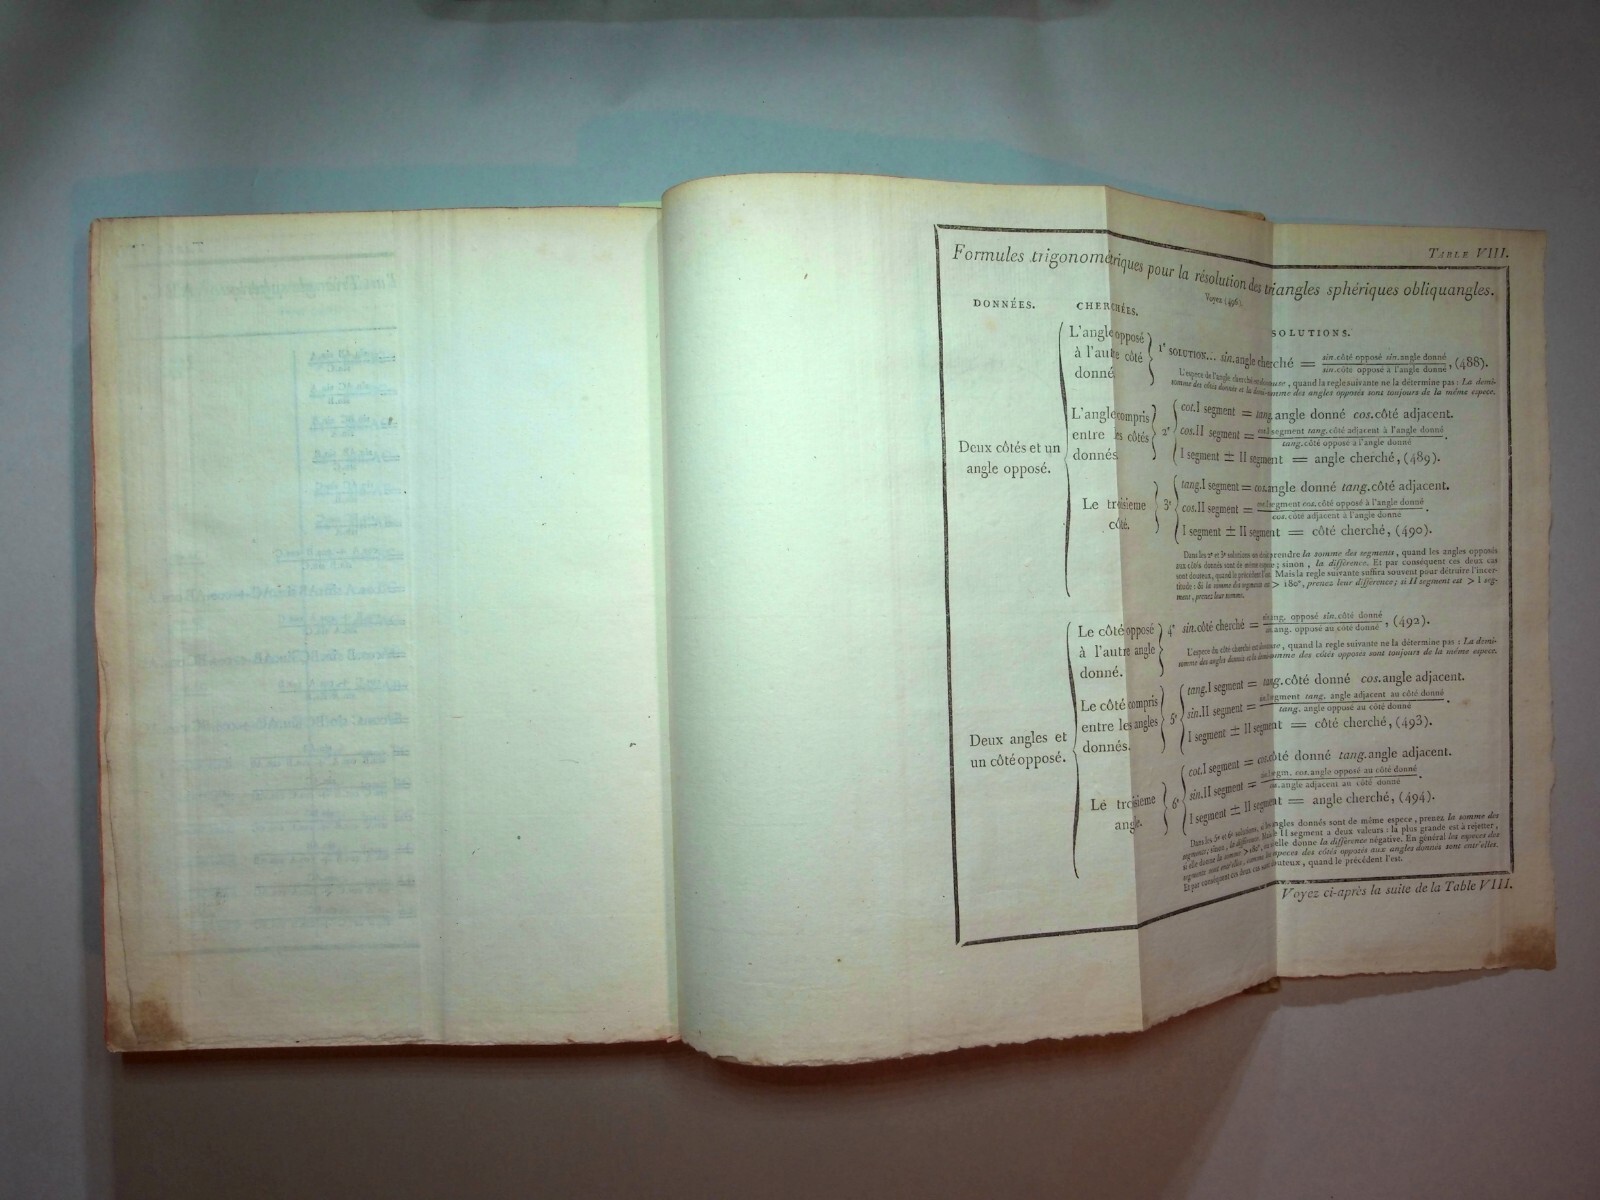 TABLE VIII.
Formules trigonométriques pour la résolution des triangles sphériques obliquangles.
Voyez (496).
DONNÉES. CHERCHÉES. SOLUTIONS.
Deux côtés et un
angle opposé.
L'angle opposé
à l'autre côté
donné
1e SOLUTION... sin.angle cherché = sin.côté opposé sin.angle donné / sin.côté opposé à l'angle donné, (488).
L'espece de l'angle cherché est douteuse, quand la regle suivante ne la détermine pas : La demi-
somme des côtés donnés et la demi-somme des angles opposés sont toujours de la même espece.
L'angle compris
entre les côtés
donnés
2e
cot.I segment = tang.angle donné cos.côté adjacent.
cos.II segment = cos.I segment tang.côté adjacent à l'angle donné / tang.côté opposé à l'angle donné.
I segment ± II segment = angle cherché, (489).
Le troisieme
côté.
3e
tang.I segment = cos.angle donné tang.côté adjacent.
cos.II segment = cos.I segment cos.côté opposé à l'angle donné / cos.côté adjacent à l'angle donné.
I segment ± II segment = côté cherché, (490).
Dans les 2e et 3e solutions on doit prendre la somme des segments, quand les angles opposés
aux côtés donnés sont de même espece; sinon, la différence. Et par conséquent ces deux cas
sont douteux, quand le précédent l'est. Mais la regle suivante suffira souvent pour détruire l'incer-
titude : Si la somme des segments est > 180°, prenez leur différence; si II segment est > I seg-
ment, prenez leur somme.
Deux angles et
un côté opposé.
Le côté opposé
à l'autre angle
donné.
4e sin.côté cherché = sin.ang. opposé sin.côté donné / sin.ang. opposé au côté donné, (492).
L'espece du côté cherché est douteuse, quand la regle suivante ne la détermine pas : La demi-
somme des angles donnés et la demi-somme des côtés opposés sont toujours de la même espece.
Le côté compris
entre les angles
donnés.
5e
tang.I segment = tang.côté donné cos.angle adjacent.
sin.II segment = sin.I segment tang. angle adjacent au côté donné / tang. angle opposé au côté donné.
I segment ± II segment = côté cherché, (493).
Le troisieme
angle.
6e
cot.I segment = cos.côté donné tang.angle adjacent.
sin.II segment = sin.I segm. cos.angle opposé au côté donné / cos.angle adjacent au côté donné.
I segment ± II segment = angle cherché, (494).
Dans les 5e et 6e solutions, si les angles donnés sont de même espece, prenez la somme des
segments; sinon, la différence. Mais le II segment a deux valeurs : la plus grande est à rejetter,
si elle donne la somme > 180°, ou si elle donne la différence négative. En général les especes des
segments sont entr'elles, comme les especes des côtés opposés aux angles donnés sont entr'elles.
Et par conséquent ces deux cas sont douteux, quand le précédent l'est.
Voyez ci-après la suite de la Table VIII.